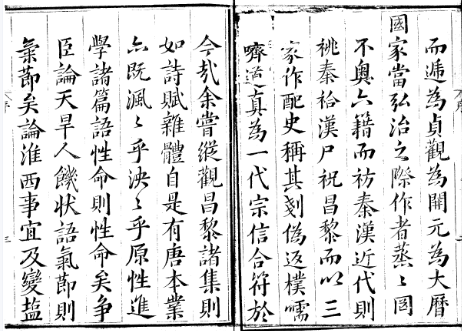 而遞為貞觀為開元為大曆
國家當弘治之際作者蒸〻國
不奧六籍而枋秦漢近代則
祧秦祫漢尸祝昌黎而以三
家作配史稱其刻偽返樸嚅
嚌道真為一代宗信合符於
今哉余嘗縱觀昌黎諸集則
如詩賦雜體自是有唐本業
亦既渢〻乎泱〻乎原性進
學諸篇語性命則性命矣争
臣論天旱人饑狀語氣節則
氣節矣論淮西事宜及變塩